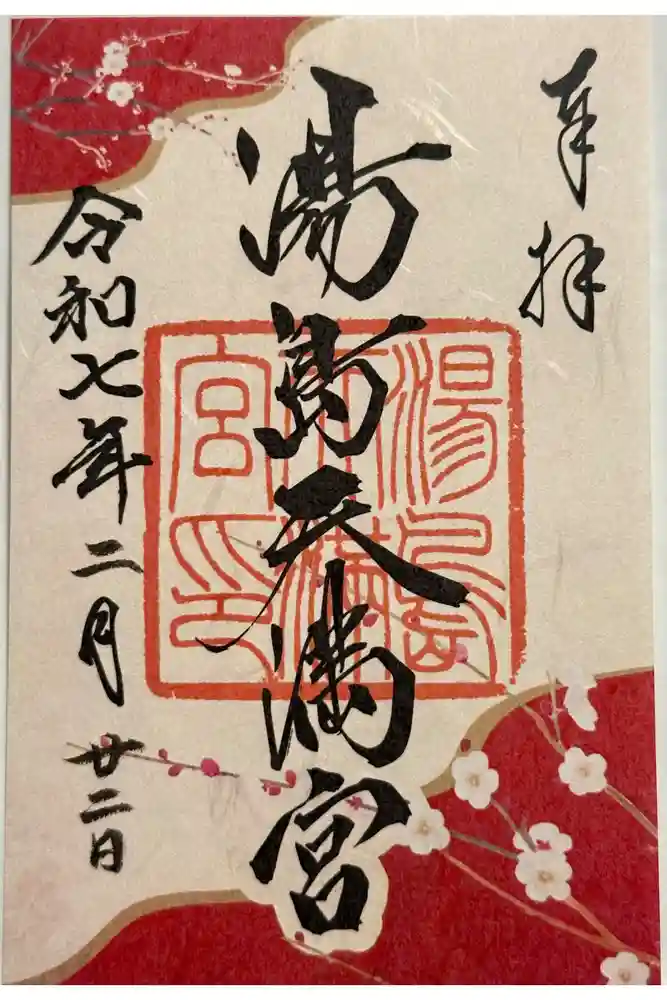 奉拝
湯島天満宮
湯島
天満
宮印
令和七年二月廿二日